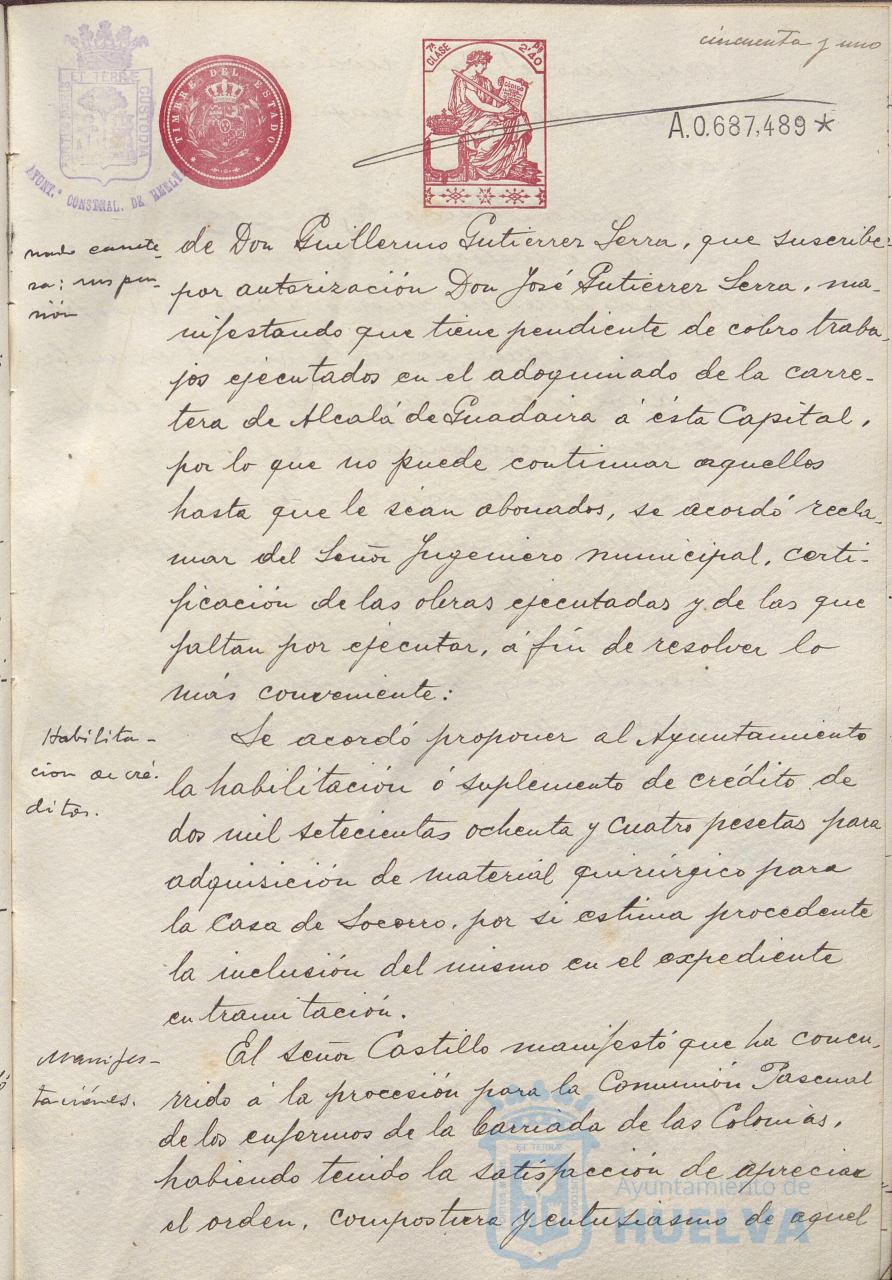 cincuenta y uno
ET TERRÆ
CUSTODIA
AYUNT.º CONSTNAL. DE HUELVA
TIMBRE DEL ESTADO
7ª CLASE
2'40
A.0.687,489 *
de Don Guillermo Gutierrez Serra, que suscribe
por autorización Don José Gutierrez Serra, ma-
nifestando que tiene pendiente de cobro traba-
jos ejecutados en el adoquinado de la carre-
tera de Alcalá de Guadaira á ésta Capital,
por lo que no puede continuar aquellos
hasta que le sean abonados, se acordó recla-
mar del Señor Ingeniero municipal, certi-
ficación de las obras ejecutadas y de las que
faltan por ejecutar, á fin de resolver lo
más conveniente:
Habilita-
cion de cré-
ditos.
Se acordó proponer al Ayuntamiento
la habilitación ó suplemento de crédito de
dos mil setecientas ochenta y cuatro pesetas para
adquisición de material quirúrgico para
la Casa de Socorro, por si estima procedente
la inclusión del mismo en el expediente
en tramitación.
Manifes-
taciones.
El señor Castillo manifestó que ha concu-
rrido á la procesión para la Comunión Pascual
de los enfermos de la barriada de las Colonias,
habiendo tenido la satisfacción de apreciar
el orden, compostura y entusiasmo de aquel
Ayuntamiento de
HUELVA